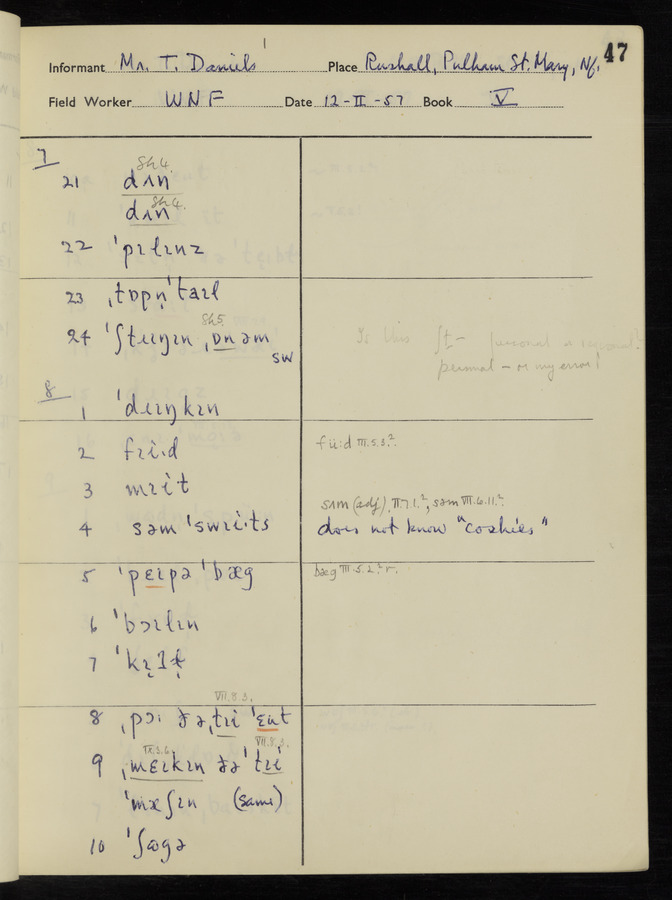 47
Informant Mr. T. Daniels Place Rushall, Pulham St. Mary, Nf.
Field Worker WNF Date 12-II-57 Book V
7
Sh4.
21 dʌn
Sh4.
dɪn
22 ˈpɪlɪnz
23 ˌtɒpn̩ˈtaɪl
Sh5
24 ˈʃtɪɪŋɪn ˌɒnəm
sw
Is this ʃt- personal or regional?
personal - or my error!
8
1 ˈdɪɪŋkɪn
2 fɪi·d fɪi:d III.5.3.²
3 mɪit
sʌm (adj), II.7.1.², səm VII.6.11.²
4 səm ˈswɪi·ts does not know "coshies"
5 ˈpɛɪpə ˈbæg bæg III.5.2.² r.
6 ˈbɔɪlɪn
7
VII.8.3.
8 ˌpɔɪ ðəˌtɪi ˈɛʉt
IX.3.6. VII.8.3.
9 ˌmɛɪkɪn ðəˈtɪi
ˈmæʃɪn (same)
10 ˈʃʊgə